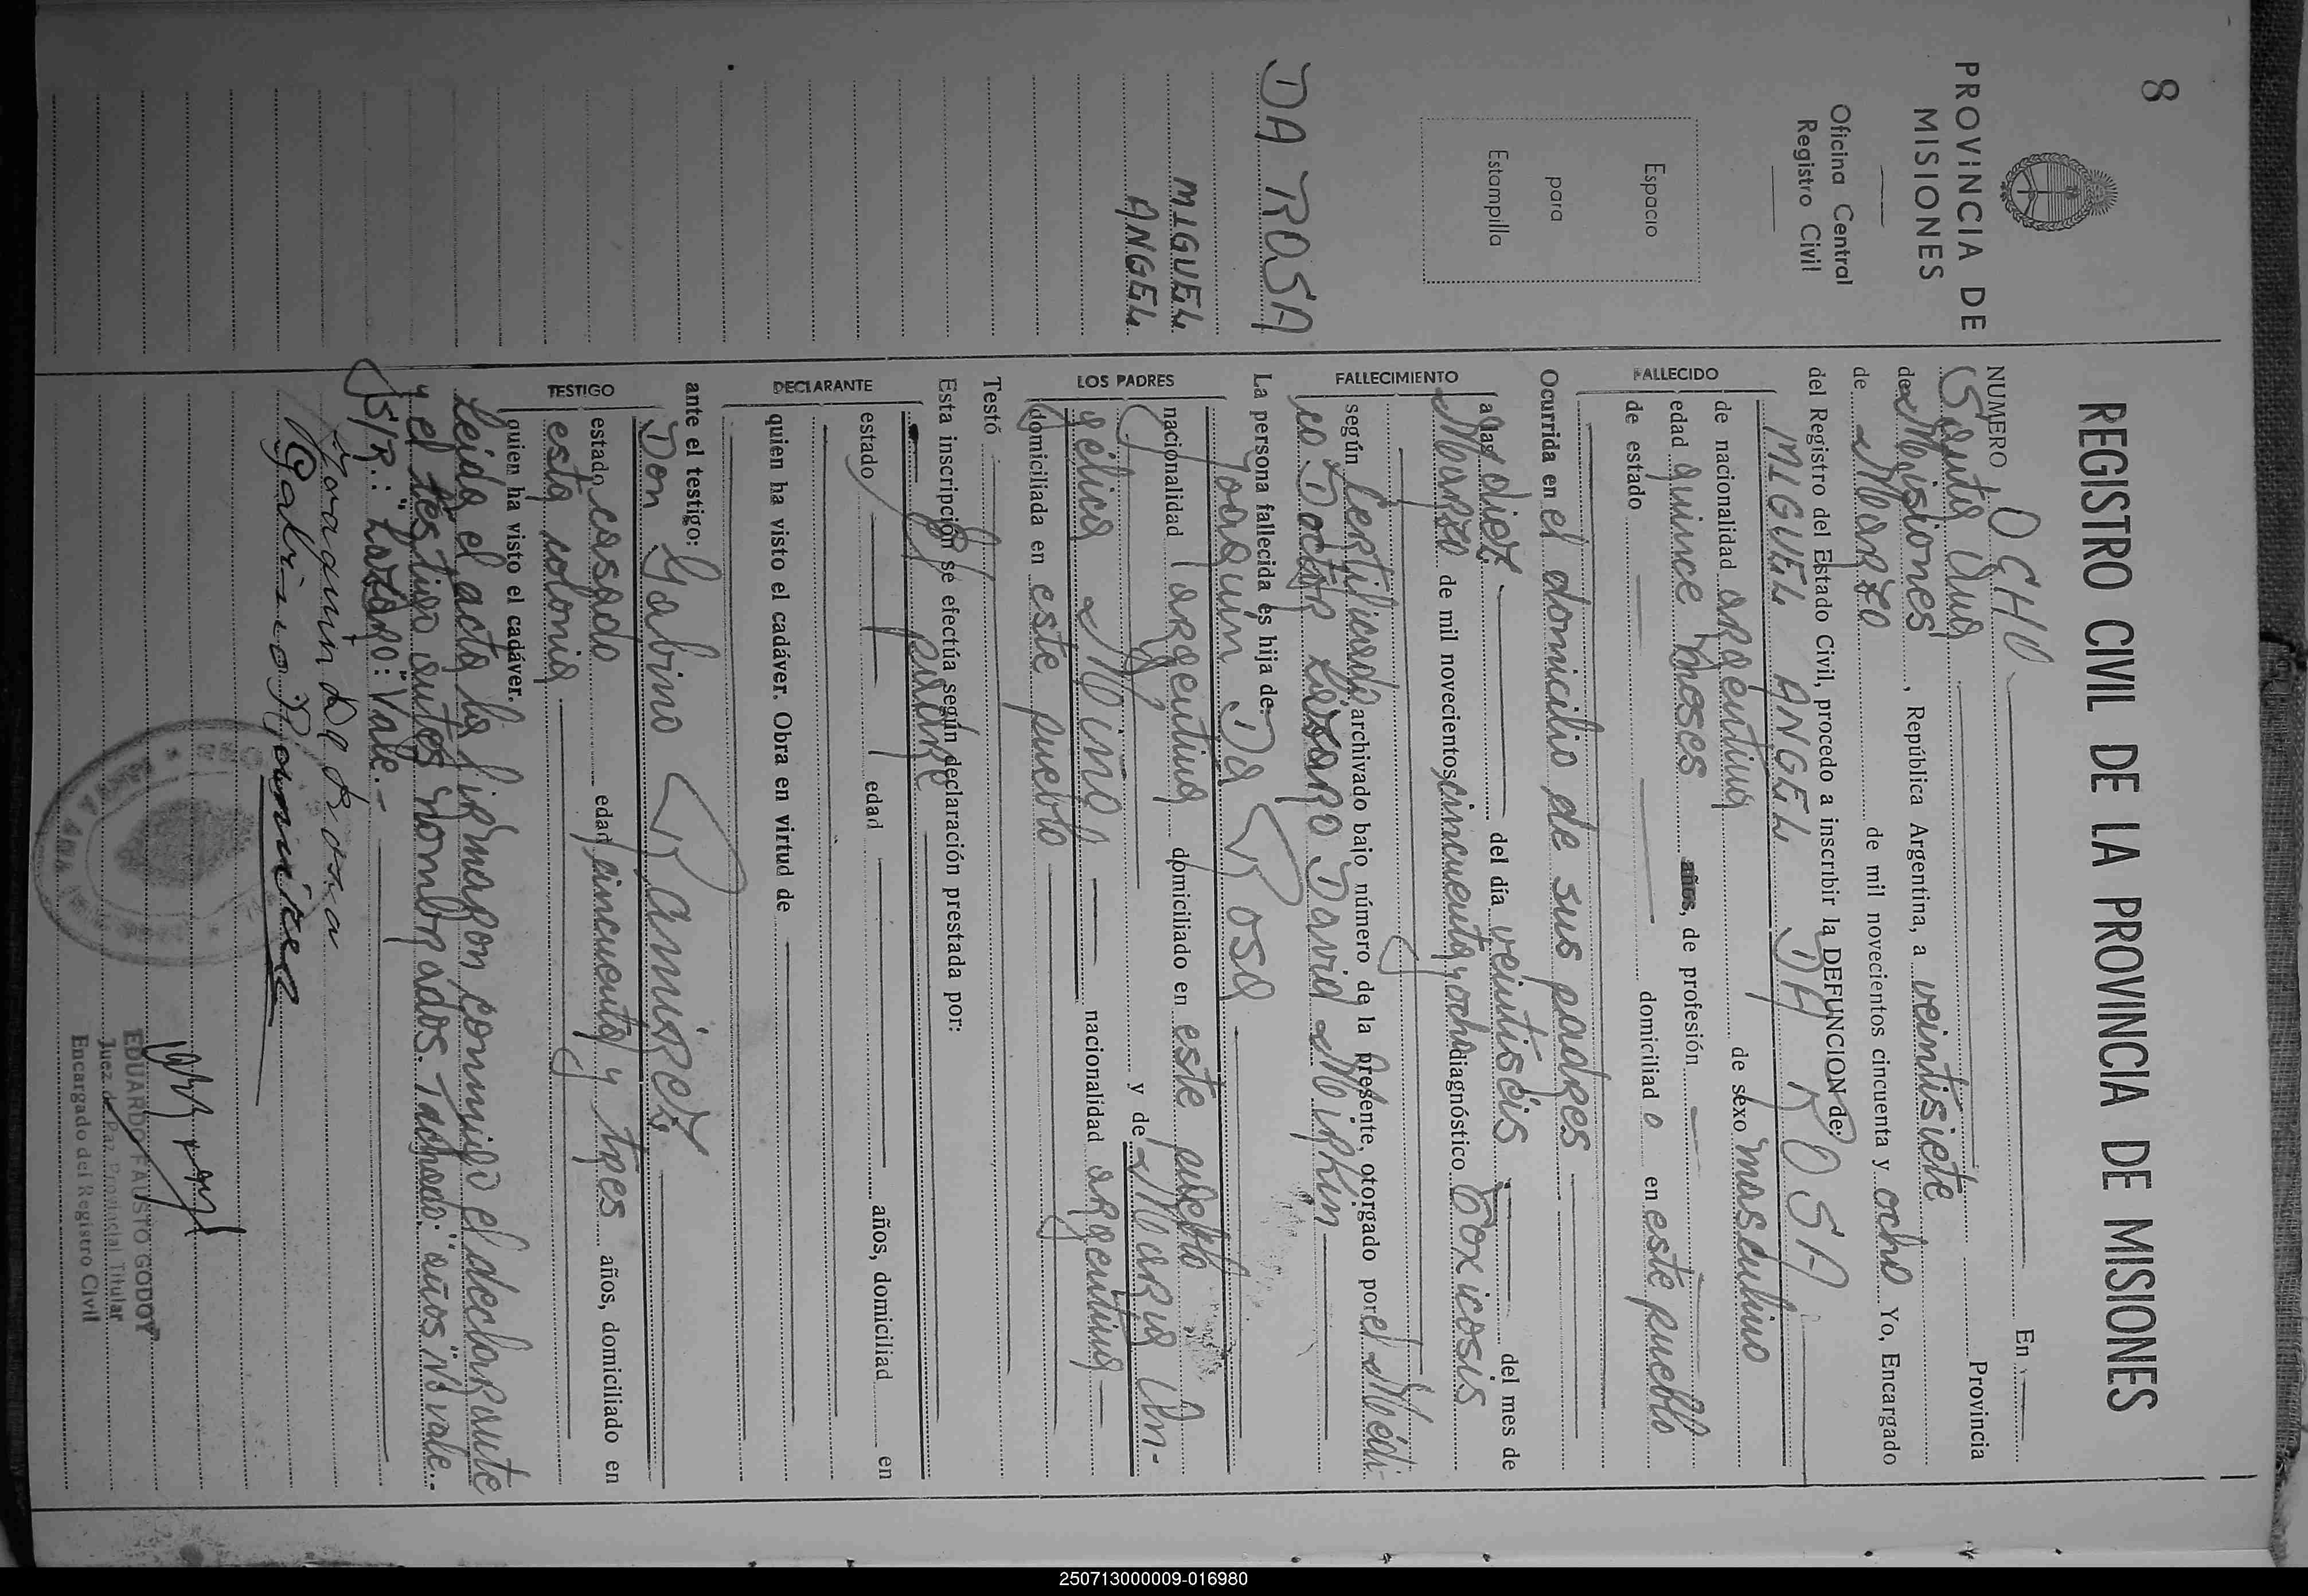 8
PROVINCIA DE
MISIONES
Oficina Central
Registro Civil
Espacio
para
Estampilla
DA ROSA
MIGUEL
ANGEL
REGISTRO CIVIL DE LA PROVINCIA DE MISIONES
NUMERO OCHO En
Santa Ana Provincia
de Misiones, República Argentina, a veintisiete
de Marzo de mil novecientos cincuenta y ocho Yo, Encargado
del Registro del Estado Civil, procedo a inscribir la DEFUNCION de:
MIGUEL ANGEL DA ROSA
FALLECIDO
de nacionalidad argentina de sexo masculino
edad quince meses años, de profesión
de estado domiciliado en este pueblo
Ocurrida en el domicilio de sus padres
FALLECIMIENTO
a las diez del día veintiseis del mes de
Marzo de mil novecientos cincuenta y ocho diagnóstico Toxicosis
según Certificado archivado bajo número de la presente, otorgado por el Médi-
co Doctor Lázaro David Mirkin
La persona fallecida es hija de:
LOS PADRES
Joaquin Da Rosa
nacionalidad argentina domiciliado en este pueblo
y de Maria An-
gélica Mino, nacionalidad argentina
domiciliada en este pueblo
Testó
Esta inscripción se efectúa según declaración prestada por:
DECLARANTE
El padre
estado edad años, domiciliad en
quien ha visto el cadáver. Obra en virtud de
ante el testigo:
TESTIGO
Don Gabino Ramirez
estado casado edad cincuenta y tres años, domiciliado en
esta colonia
quien ha visto el cadáver.
Leida el acta la firmaron conmigo el declarante
y el testigo antes nombrados. Tachado: "años" No vale.-
S/R.: "Lazaro": Vale.-
Joaquin Da Rosa
Gabino Ramirez
EDUARDO FAUSTO GODOY
Juez de Paz Provincial Titular
Encargado del Registro Civil
250713000009-016980